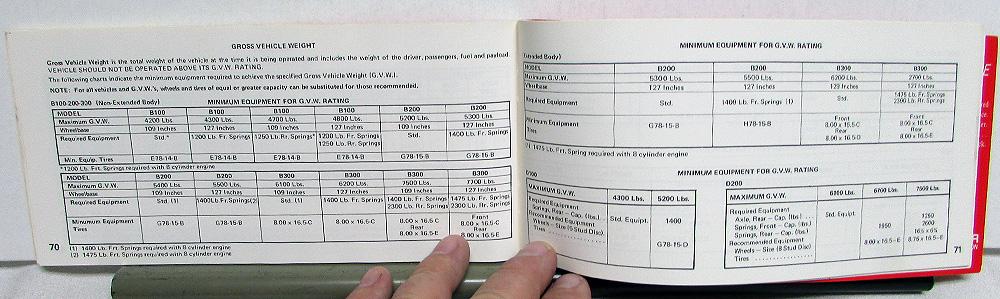 GROSS VEHICLE WEIGHT
Gross Vehicle Weight is the total weight of the vehicle at the time it is being operated and includes the weight of the driver, passengers, fuel and payload.
VEHICLE SHOULD NOT BE OPERATED ABOVE ITS G.V.W. RATING.
The following charts indicate the minimum equipment required to achieve the specified Gross Vehicle Weight (G.V.W.).
NOTE: For all vehicles and G.V.W.'s, wheels and tires of equal or greater capacity can be substituted for those recommended.
B100-200-300 (Non-Extended Body) MINIMUM EQUIPMENT FOR G.V.W. RATING
MODEL B100 B100 B100 B100 B200 B200
Maximum G.V.W. 4200 Lbs. 4300 Lbs. 4700 Lbs. 4800 Lbs. 5200 Lbs. 5300 Lbs.
Wheelbase 109 Inches 127 Inches 109 Inches 127 Inches 109 Inches 127 Inches
Required Equipment Std.* 1200 Lb. Frt. Springs 1250 Lb. Rr. Springs* 1200 Lb. Frt. Springs Std. 1400 Lb. Frt. Springs
1250 Lb. Rr. Springs
Min. Equip. Tires E78-14-B E78-14-B E78-14-B E78-14-B G78-15-B G78-15-B
*1200 Lb. Frt. Springs required with 8 cylinder engine
MODEL B200 B200 B300 B300 B300 B300
Maximum G.V.W. 5400 Lbs. 5500 Lbs. 6100 Lbs. 6200 Lbs. 7500 Lbs. 7700 Lbs.
Wheelbase 109 Inches 127 Inches 109 Inches 127 Inches 109 Inches 127 Inches
Required Equipment Std. (1) 1400 Lb. Frt. Springs(2) Std. (1) 1400 Lb. Frt. Springs 1400 Lb. Frt. Springs 1475 Lb. Frt. Springs
2300 Lb. Rr. Springs 2300 Lb. Rr. Springs
Minimum Equipment Tires G78-15-B G78-15-B 8.00 x 16.5-C 8.00 x 16.5-C Front
8.00 x 16.5-C 8.00 x 16.5-C
Rear Rear
8.00 x 16.5-E 8.00 x 16.5-E
(1) 1400 Lb. Frt. Springs required with 8 cylinder engine
(2) 1475 Lb. Frt. Springs required with 8 cylinder engine
70
MINIMUM EQUIPMENT FOR G.V.W. RATING
Extended Body)
MODEL B200 B200 B300 B300
Maximum G.V.W. 5300 Lbs. 5500 Lbs. 6200 Lbs. 7700 Lbs.
Wheelbase 127 Inches 127 Inches 127 Inches 127 Inches
Required Equipment Std. 1400 Lb. Frt. Springs (1) Std. 1475 Lb. Fr. Springs
2300 Lb. Rr. Springs
Minimum Equipment Tires G78-15-B H78-15-B Front Front
8.00 x 16.5-C 8.00 x 16.5-C
Rear Rear
8.00 x 16.5-D 8.00 x 16.5-E
(1) 1475 Lb. Frt. Spring required with 8 cylinder engine
MINIMUM EQUIPMENT FOR G.V.W. RATING
D100
MAXIMUM G.V.W. 4300 Lbs. 5200 Lbs.
Required Equipment
Springs, Rear - Cap. (lbs.) Std. Equipt. 1400
Recommended Equipment
Wheels - Size (5 Stud Disc)
Tires G78-15-D
D200
MAXIMUM G.V.W. 6700 Lbs. 7500 Lbs.
Required Equipment
Axle, Rear - Cap. (lbs.) Std. Equipt.
Springs, Front - Cap. (lbs.) 1250
Springs, Rear - Cap. (lbs.) 1950 2600
Recommended Equipment
Wheels - Size (8 Stud Disc)
Tires 8.00 x 16.5-E 8.75 x 16.5-E
71